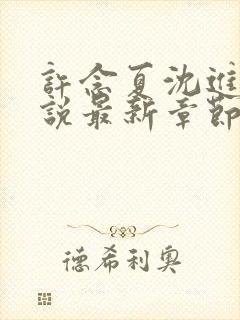 許念夏沈進
說最新章節
德希利奧